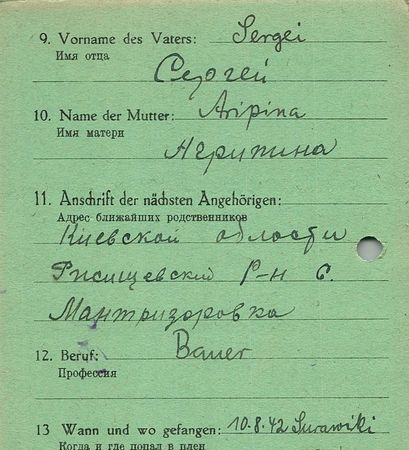 9. Vorname des Vaters: Sergei
Имя отца
Сергей
10. Name der Mutter: Aripina
Имя матери
Агрипина
11. Anschrift der nächsten Angehörigen:
Адрес ближайших родственников
Киевской области
Ржищевский Р-н С.
Мантризоровка
12. Beruf: Bauer
Профессия
13 Wann und wo gefangen: 10.8.42 Surawiki
Когда и где попал в плен